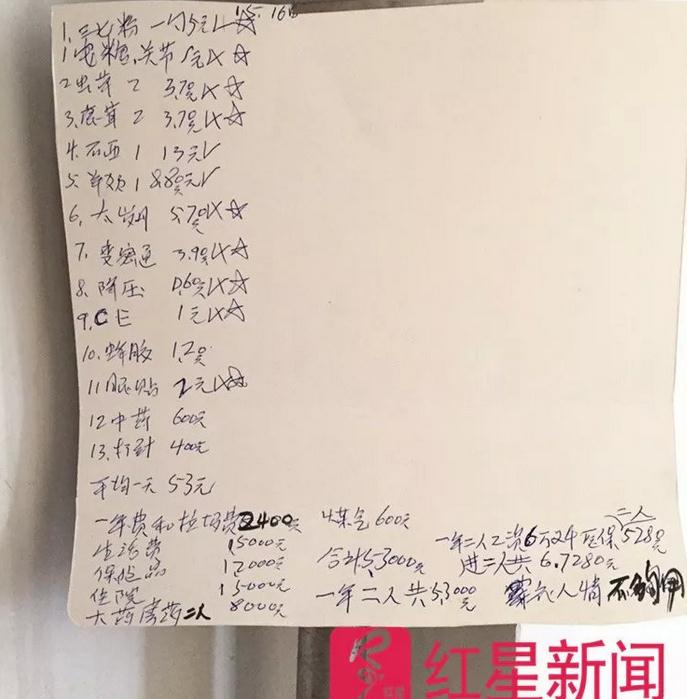 15. 16日
1, 三七粉 一勺 5元
1 氨糖、关节 1元
2 虫草 2 3.7元
3. 鹿茸 2 3.7元
4. 石西 1 13元
5. 1 8.80元
6. 5.70元
7. 通 3.9元
8. 降压 0.60元
9. C E 1元
10. 蜂胶 1.2元
11 贴 2元
12 中药 600元
13. 打针 400元
平均一天 53元
一年费和垃圾费2400元 煤气 600元
生活费 15000元 一年二人工资6万24 医保5280元 二人
保险品 12000元 合计53000元 进二人共 6.7280元
住院 15000元 一年二人共53000元 人情 不够用
大药房药二人 8000元
红星新闻